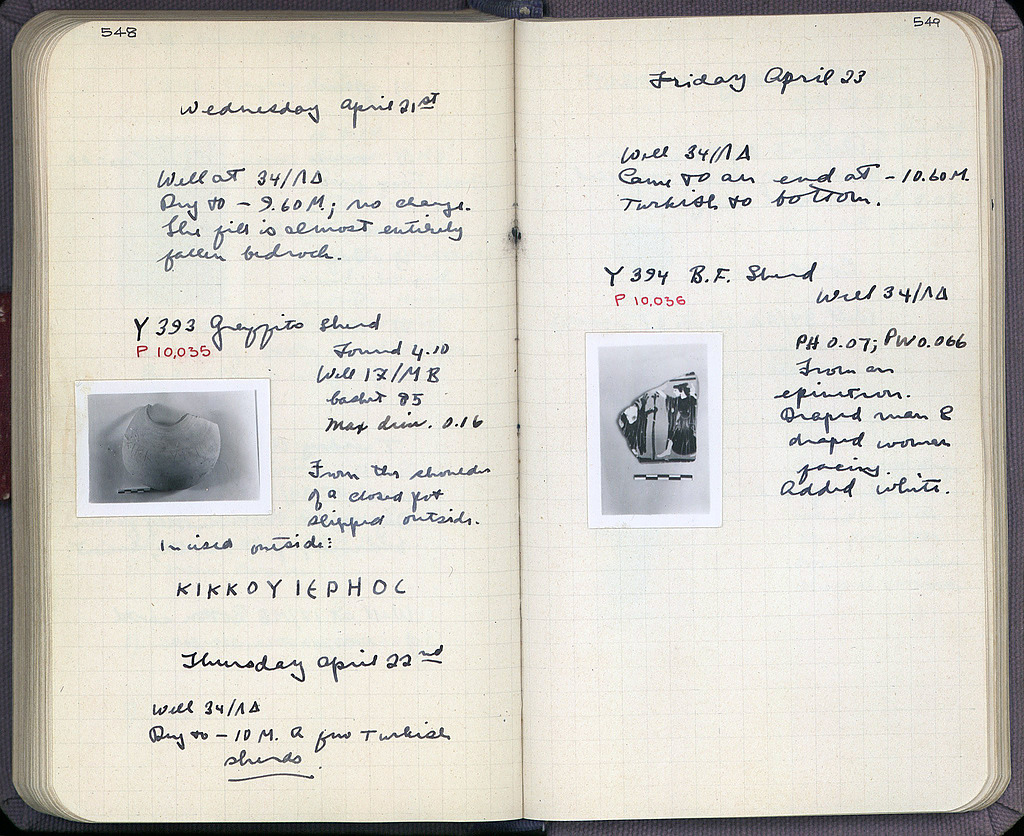 548
Wednesday April 21st
Well at 34/ΛΔ
Dug to - 9.60 M; no change.
The fill is almost entirely
fallen bedrock.
Y 393 Graffito Sherd
P 10,035
Found 4.10
Well 17/MB
basket 85
Max dim. 0.16
From the shoulder
of a closed pot
slipped outside.
Incised outside:
KIKKOYIEPHOC
Thursday April 22nd
Well 34/ΛΔ
Dug to - 10 M. A few Turkish
sherds.
549
Friday April 23
Well 34/ΛΔ
Came to an end at - 10.60 M.
Turkish to bottom.
Y 394 B.F. Sherd
P 10,036
Well 34/ΛΔ
PH 0.07; PW 0.066
From an
epinetron.
Draped man &
draped woman
facing.
Added white.